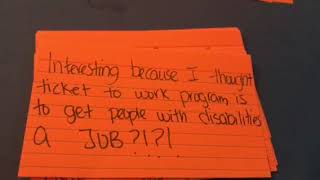 Interesting because I thought
ticket to work program is
to get people with disabilities
a JOB?!?!
....